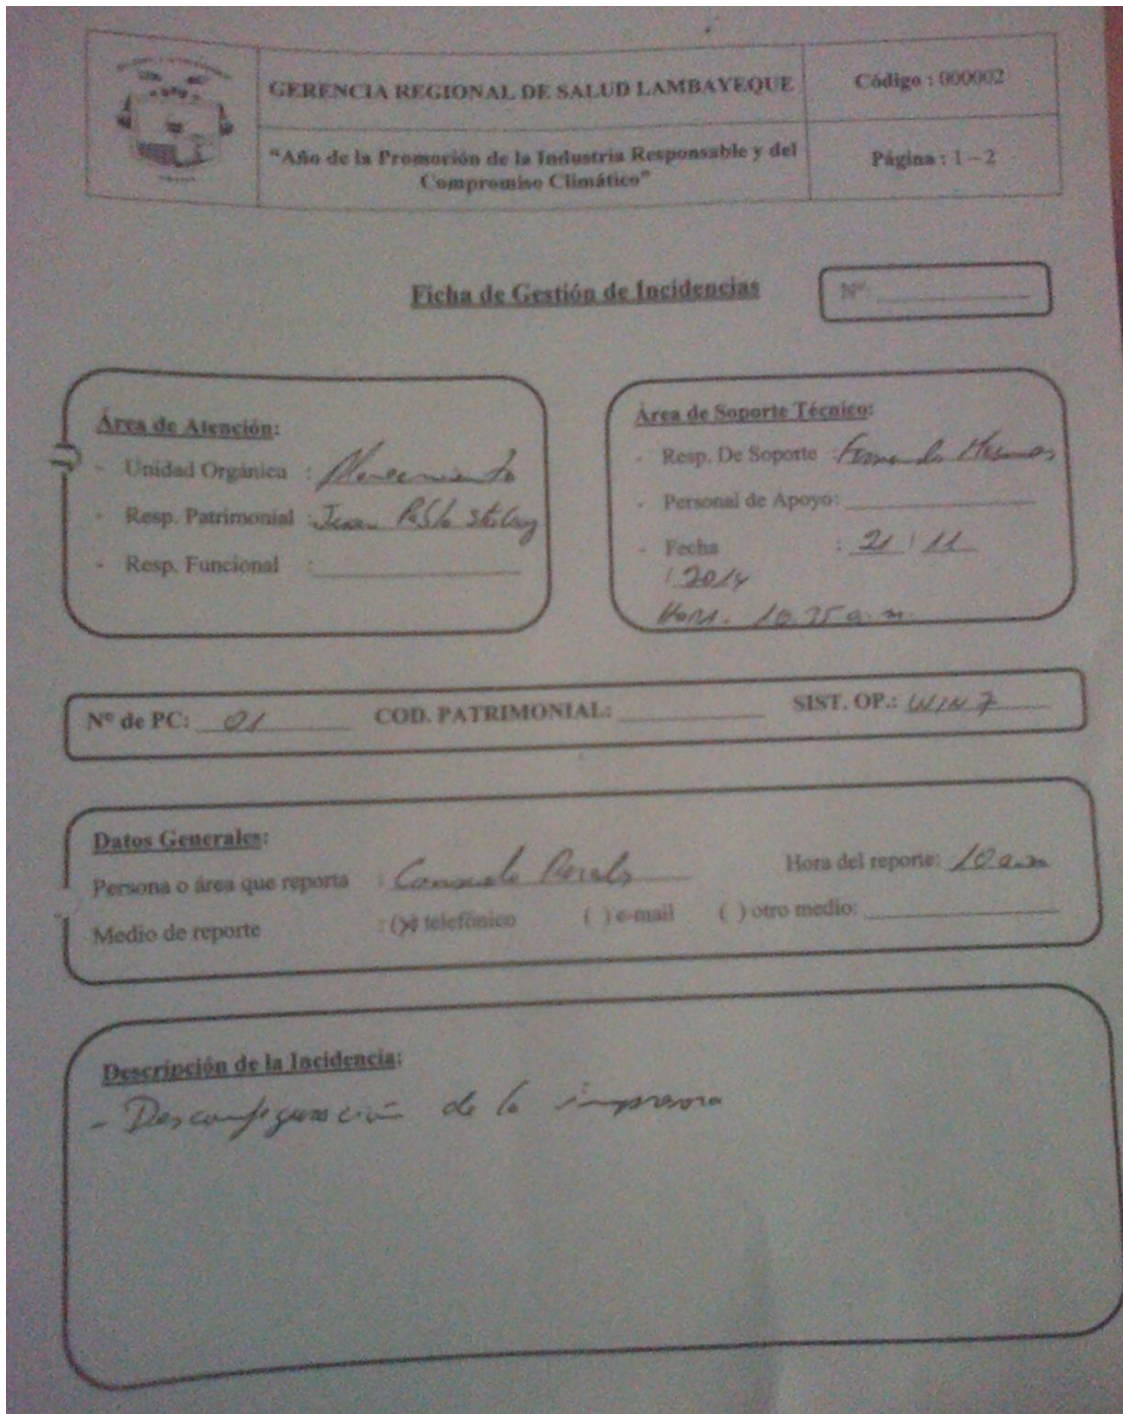 GERENCIA REGIONAL DE SALUD LAMBAYEQUE
Código : 000002
"Año de la Promoción de la Industria Responsable y del
Compromiso Climático"
Página : 1 – 2
Ficha de Gestión de Incidencias
N°: ____________
Área de Atención:
- Unidad Orgánica : Planeamiento
- Resp. Patrimonial : Juan Pablo
- Resp. Funcional : ____________
Área de Soporte Técnico:
- Resp. De Soporte : Fernando
- Personal de Apoyo: ____________
- Fecha : 21 / 11
/ 2014
Hora. 10.35 a.m.
N° de PC: 01 COD. PATRIMONIAL: ____________ SIST. OP.: WIN 7
Datos Generales:
Persona o área que reporta : Consuelo Hora del reporte: 10 a.m
Medio de reporte : (x) telefónico ( ) e-mail ( ) otro medio: ____________
Descripción de la Incidencia:
- Desconfiguración de la impresora